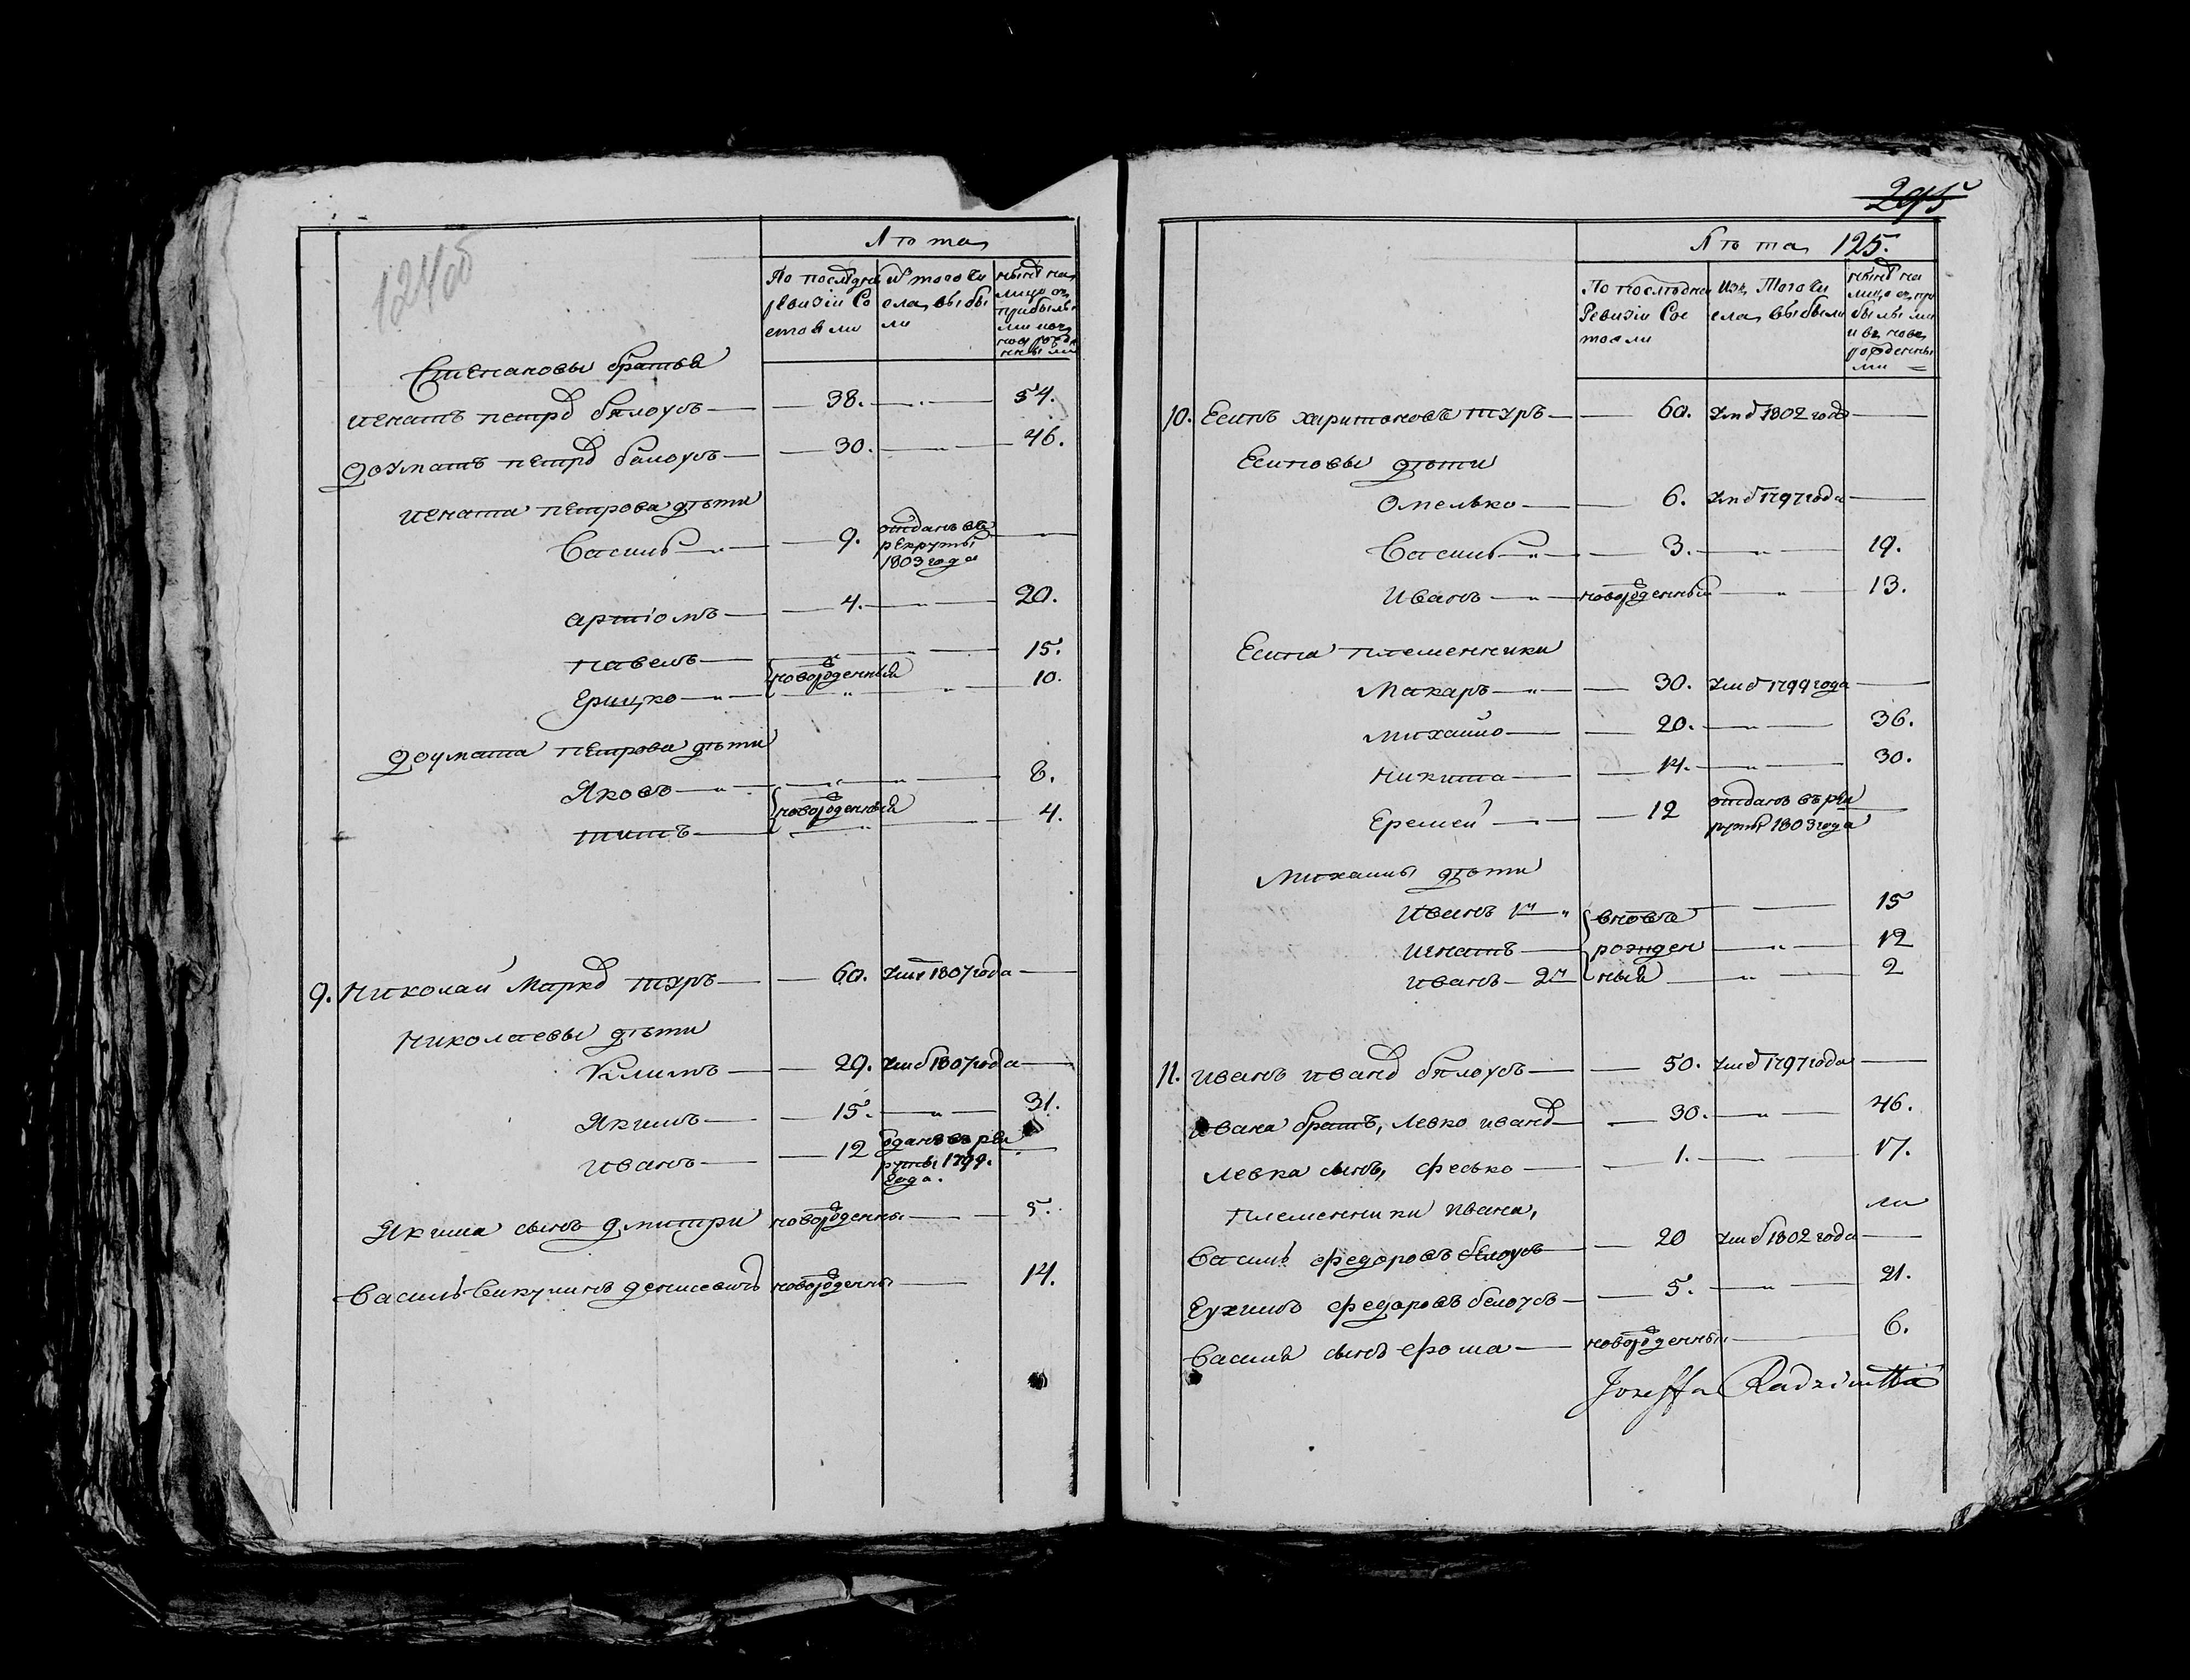 124об
Лѣта
По последней ревизіи Состояли
Из того числа, выбыли
ныне на лицо съ прибылыми и новорожденными
Степановы братья
Игнатъ петров бѣлоусъ — 38. — " — 54.
Доумать петров бѣлоусъ — 30. — " — 46.
Игната петрова дѣти
Василь — " — 9. отданъ въ рекруты 1803 года —
Артіомъ — 4. — " — 20.
Павелъ — " — 15.
новорожденный
Грицко — " — " — " — 10.
Доумата петрова дѣти
Яковъ — " — " — " — 8.
новорожденный
Титъ — " — 4.
9. Николай Марков туръ — 60. Умеръ 1807 года —
Николаевы дѣти
Климъ — 29. Умеръ 1807 года —
Якимъ — 15. — " — 31.
Иванъ — 12 одданъ въ рекруты 1799. года. —
Якима сынъ Дмитри новорожденны — — 5.
Василь Викулинъ денисевичъ новорожденны — 14.
295
Лѣта 125.
По последней Ревизіи Состояли
изъ Того числа, выбыли
ныне на лицо съ прибылыми и въ новорожденными
10. Есипъ харитоновъ туръ — 60. Умеръ 1802 года —
Есиповы дѣти
Омелько — 6. Умеръ 1797 года —
Василь — " — 3. — " — 19.
Иванъ — " — новорожденный — " — 13.
Есипа племенники
Макаръ — " — 30. Умеръ 1799 года —
Михайло — 20. — " — 36.
Никита — 14. — " — 30.
Еремей — 12 отданъ въ рекруты 1803 года —
Михайлы дѣти
Иванъ 1й " вновь — 15
Игнатъ — рожден — " — 12
Иванъ — 2й ный — " — 2
11. Иванъ иванов бѣлоусъ — 50. Умеръ 1797 года —
Ивана братъ, Левко иванов — 30. — " — 46.
Левка сынъ, Фесько — 1. — " — 17.
Племенники Ивана,
Василь федоровъ бѣлоусъ — 20 Умеръ 1802 года —
Еухимъ федоровъ белоусъ — 5. — " — 21.
Василя сынъ Фома — новорожденный — 6.
Jozeffa